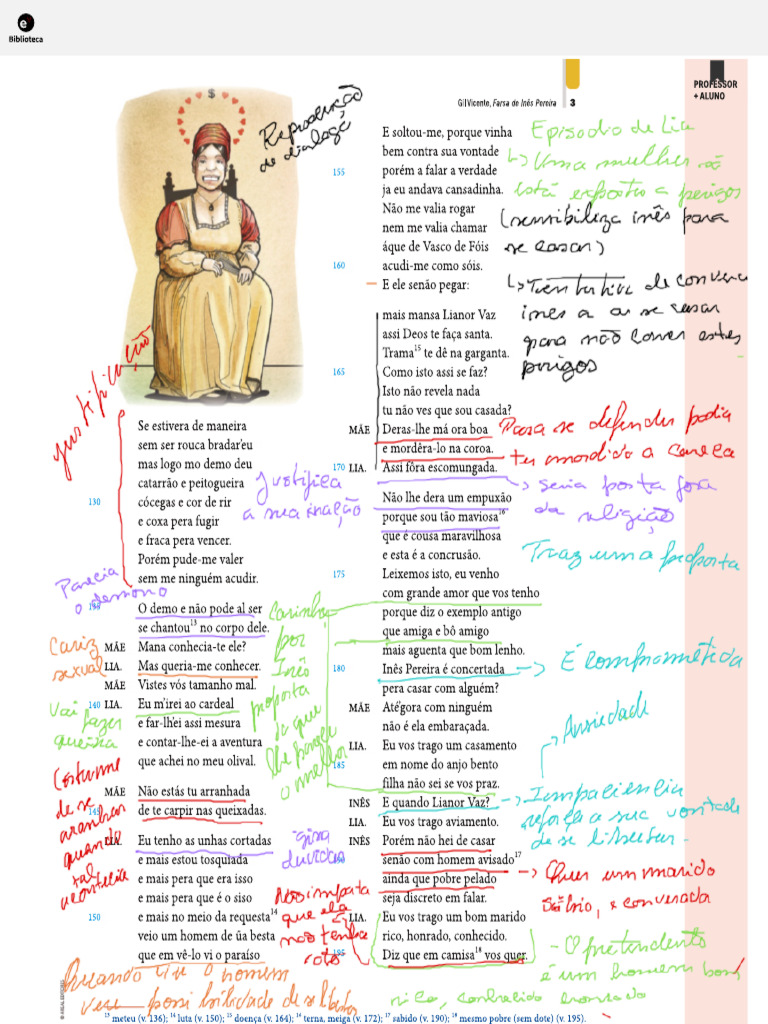 e
Biblioteca
Gil Vicente, Farsa de Inês Pereira 3
PROFESSOR
+ ALUNO
$
Reprodução
de dialogo
justificação
Se estivera de maneira
sem ser rouca bradar'eu
mas logo mo demo deu
catarrão e peitogueira
130 cócegas e cor de rir
e coxa pera fugir
e fraca pera vencer.
Porém pude-me valer
sem me ninguém acudir.
Justifica
a sua inação
Parecia
o demonio
O demo e não pode al ser
se chantou¹³ no corpo dele.
MÃE Mana conhecia-te ele?
LIA. Mas queria-me conhecer.
MÃE Vistes vós tamanho mal.
140 LIA. Eu m'irei ao cardeal
e far-lhei assi mesura
e contar-lhe-ei a aventura
que achei no meu olival.
MÃE Não estás tu arranhada
145 de te carpir nas queixadas.
LIA. Eu tenho as unhas cortadas
e mais estou tosquiada
e mais pera que era isso
e mais pera que é o siso
150 e mais no meio da requesta¹⁴
veio um homem de ũa besta
que em vê-lo vi o paraíso
Cariz
sexual
Vai fazer
queixa
Costume
de se
aranhar
quando
tal
acontecia
Carinho
por
Inês
proposta
do que
lhe parece
o melhor
gira
duvidas
Não importa
que ela
não tenha
Quando viu o homem
E soltou-me, porque vinha
bem contra sua vontade
155 porém a falar a verdade
ja eu andava cansadinha.
Não me valia rogar
nem me valia chamar
áque de Vasco de Fóis
160 acudi-me como sóis.
E ele senão pegar:
mais mansa Lianor Vaz
assi Deos te faça santa.
Trama¹⁵ te dê na garganta.
165 Como isto assi se faz?
Isto não revela nada
tu não ves que sou casada?
MÃE Deras-lhe má ora boa
e mordêra-lo na coroa.
170 LIA. Assi fôra escomungada.
Não lhe dera um empuxão
porque sou tão maviosa¹⁶
que é cousa maravilhosa
e esta é a concrusão.
175 Leixemos isto, eu venho
com grande amor que vos tenho
porque diz o exemplo antigo
que amiga e bô amigo
mais aguenta que bom lenho.
180 Inês Pereira é concertada
pera casar com alguém?
MÃE Até'gora com ninguém
não é ela embaraçada.
LIA. Eu vos trago um casamento
185 em nome do anjo bento
filha não sei se vos praz.
INÊS E quando Lianor Vaz?
LIA. Eu vos trago aviamento.
INÊS Porém não hei de casar
senão com homem avisado¹⁷
ainda que pobre pelado
seja discreto em falar.
LIA. Eu vos trago um bom marido
rico, honrado, conhecido.
195 Diz que em camisa¹⁸ vos quer.
Episodio de Lia
Uma mulher só
está exposta a perigos
(sensibiliza inês para
se casar)
Tentativa de convence
ines a se casar
para não correr estes
perigos
Para se defender podia
ter mordido a careca
seria posta fora
da religião
Traz uma proposta
É comprometida
Ansiedade
Impaciencia
reforça a sua vontade
de se libertar
Quer um marido
Sábio, e conversada
- O pretendente
é um homem bom,
rico, conhecido honrado
¹³ meteu (v. 136); ¹⁴ luta (v. 150); ¹⁵ doença (v. 164); ¹⁶ terna, meiga (v. 172); ¹⁷ sabido (v. 190); ¹⁸ mesmo pobre (sem dote) (v. 195).